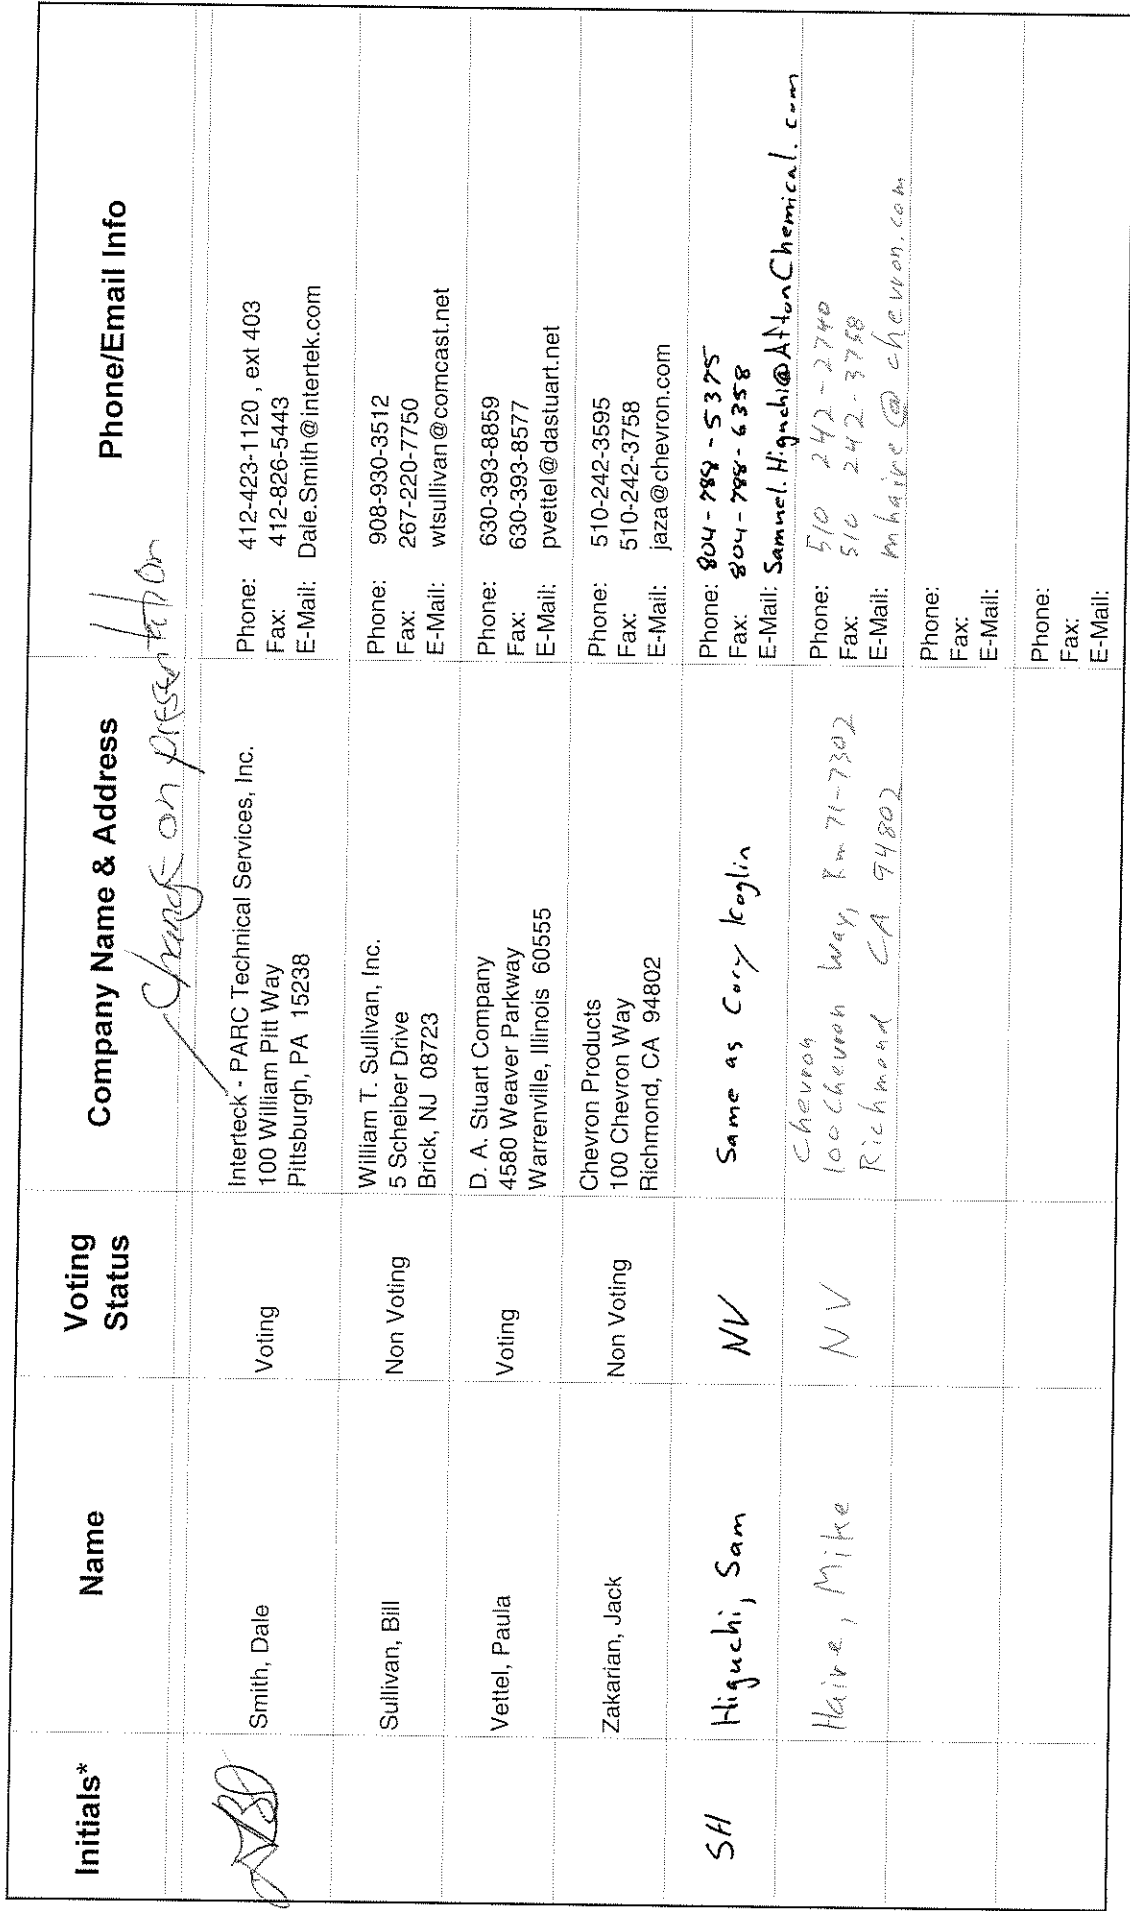 Initials*
Name
Voting
Status
Company Name & Address
Phone/Email Info
Change on presentation
Smith, Dale
Voting
Interteck - PARC Technical Services, Inc.
100 William Pitt Way
Pittsburgh, PA 15238
Phone: 412-423-1120 , ext 403
Fax: 412-826-5443
E-Mail: Dale.Smith@intertek.com
Sullivan, Bill
Non Voting
William T. Sullivan, Inc.
5 Scheiber Drive
Brick, NJ 08723
Phone: 908-930-3512
Fax: 267-220-7750
E-Mail: wtsullivan@comcast.net
Vettel, Paula
Voting
D. A. Stuart Company
4580 Weaver Parkway
Warrenville, Illinois 60555
Phone: 630-393-8859
Fax: 630-393-8577
E-Mail: pvettel@dastuart.net
Zakarian, Jack
Non Voting
Chevron Products
100 Chevron Way
Richmond, CA 94802
Phone: 510-242-3595
Fax: 510-242-3758
E-Mail: jaza@chevron.com
SH
Higuchi, Sam
NV
Same as Cory Koglin
Phone: 804-788-5375
Fax: 804-788-6358
E-Mail: Samuel.Higuchi@AftonChemical.com
Haire, Mike
NV
Chevron
100 Chevron Way, Rm 71-7302
Richmond CA 94802
Phone: 510 242-2740
Fax: 510 242-3758
E-Mail: mhaire@chevron.com
Phone:
Fax:
E-Mail:
Phone:
Fax:
E-Mail: